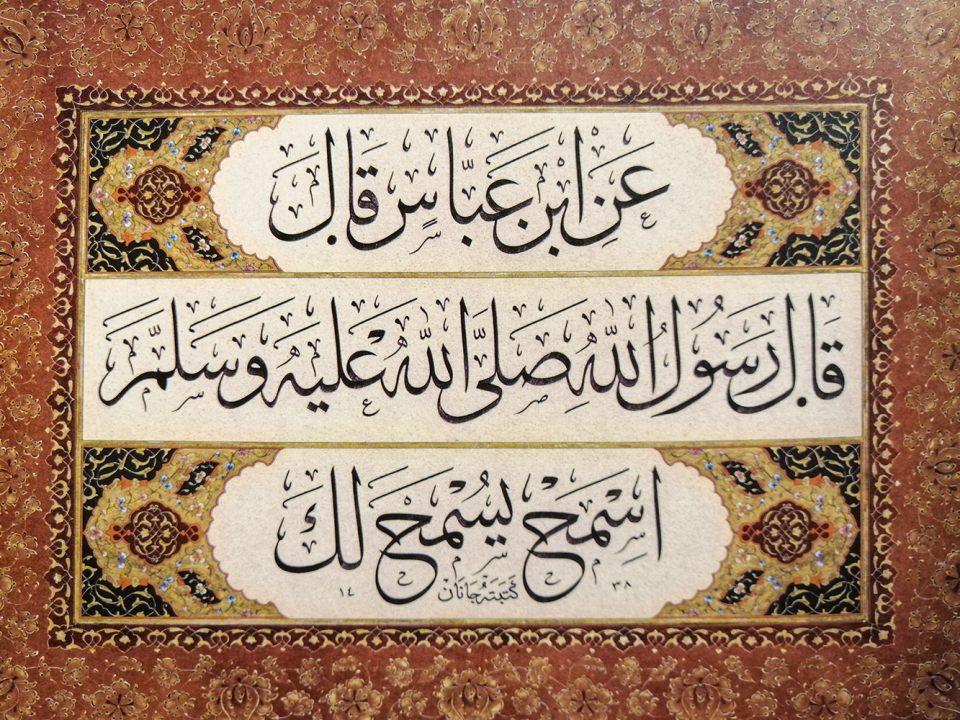 عَنِ ابْنِ عَبَّاسٍ قَالَ
قَالَ رَسُولُ اللّٰهِ صَلَّى اللّٰهُ عَلَيْهِ وَسَلَّمَ
اِسْمَحْ يُسْمَحْ لَكَ
١٤ كَتَبَتْهُ جَانَانْ ٣٨